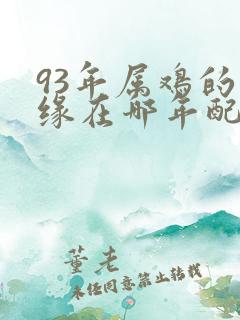 93年属鸡的
缘在哪年配
董老
未经同意禁止转载